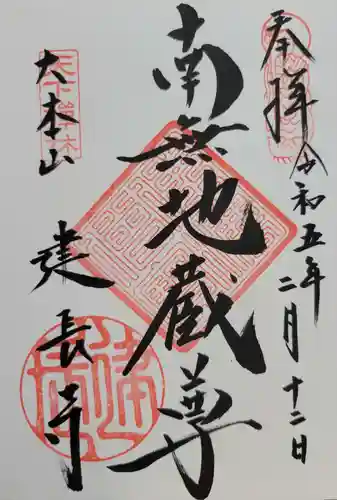 奉拝
令和五年
二月十二日
南無地蔵尊
大本山
建長寺